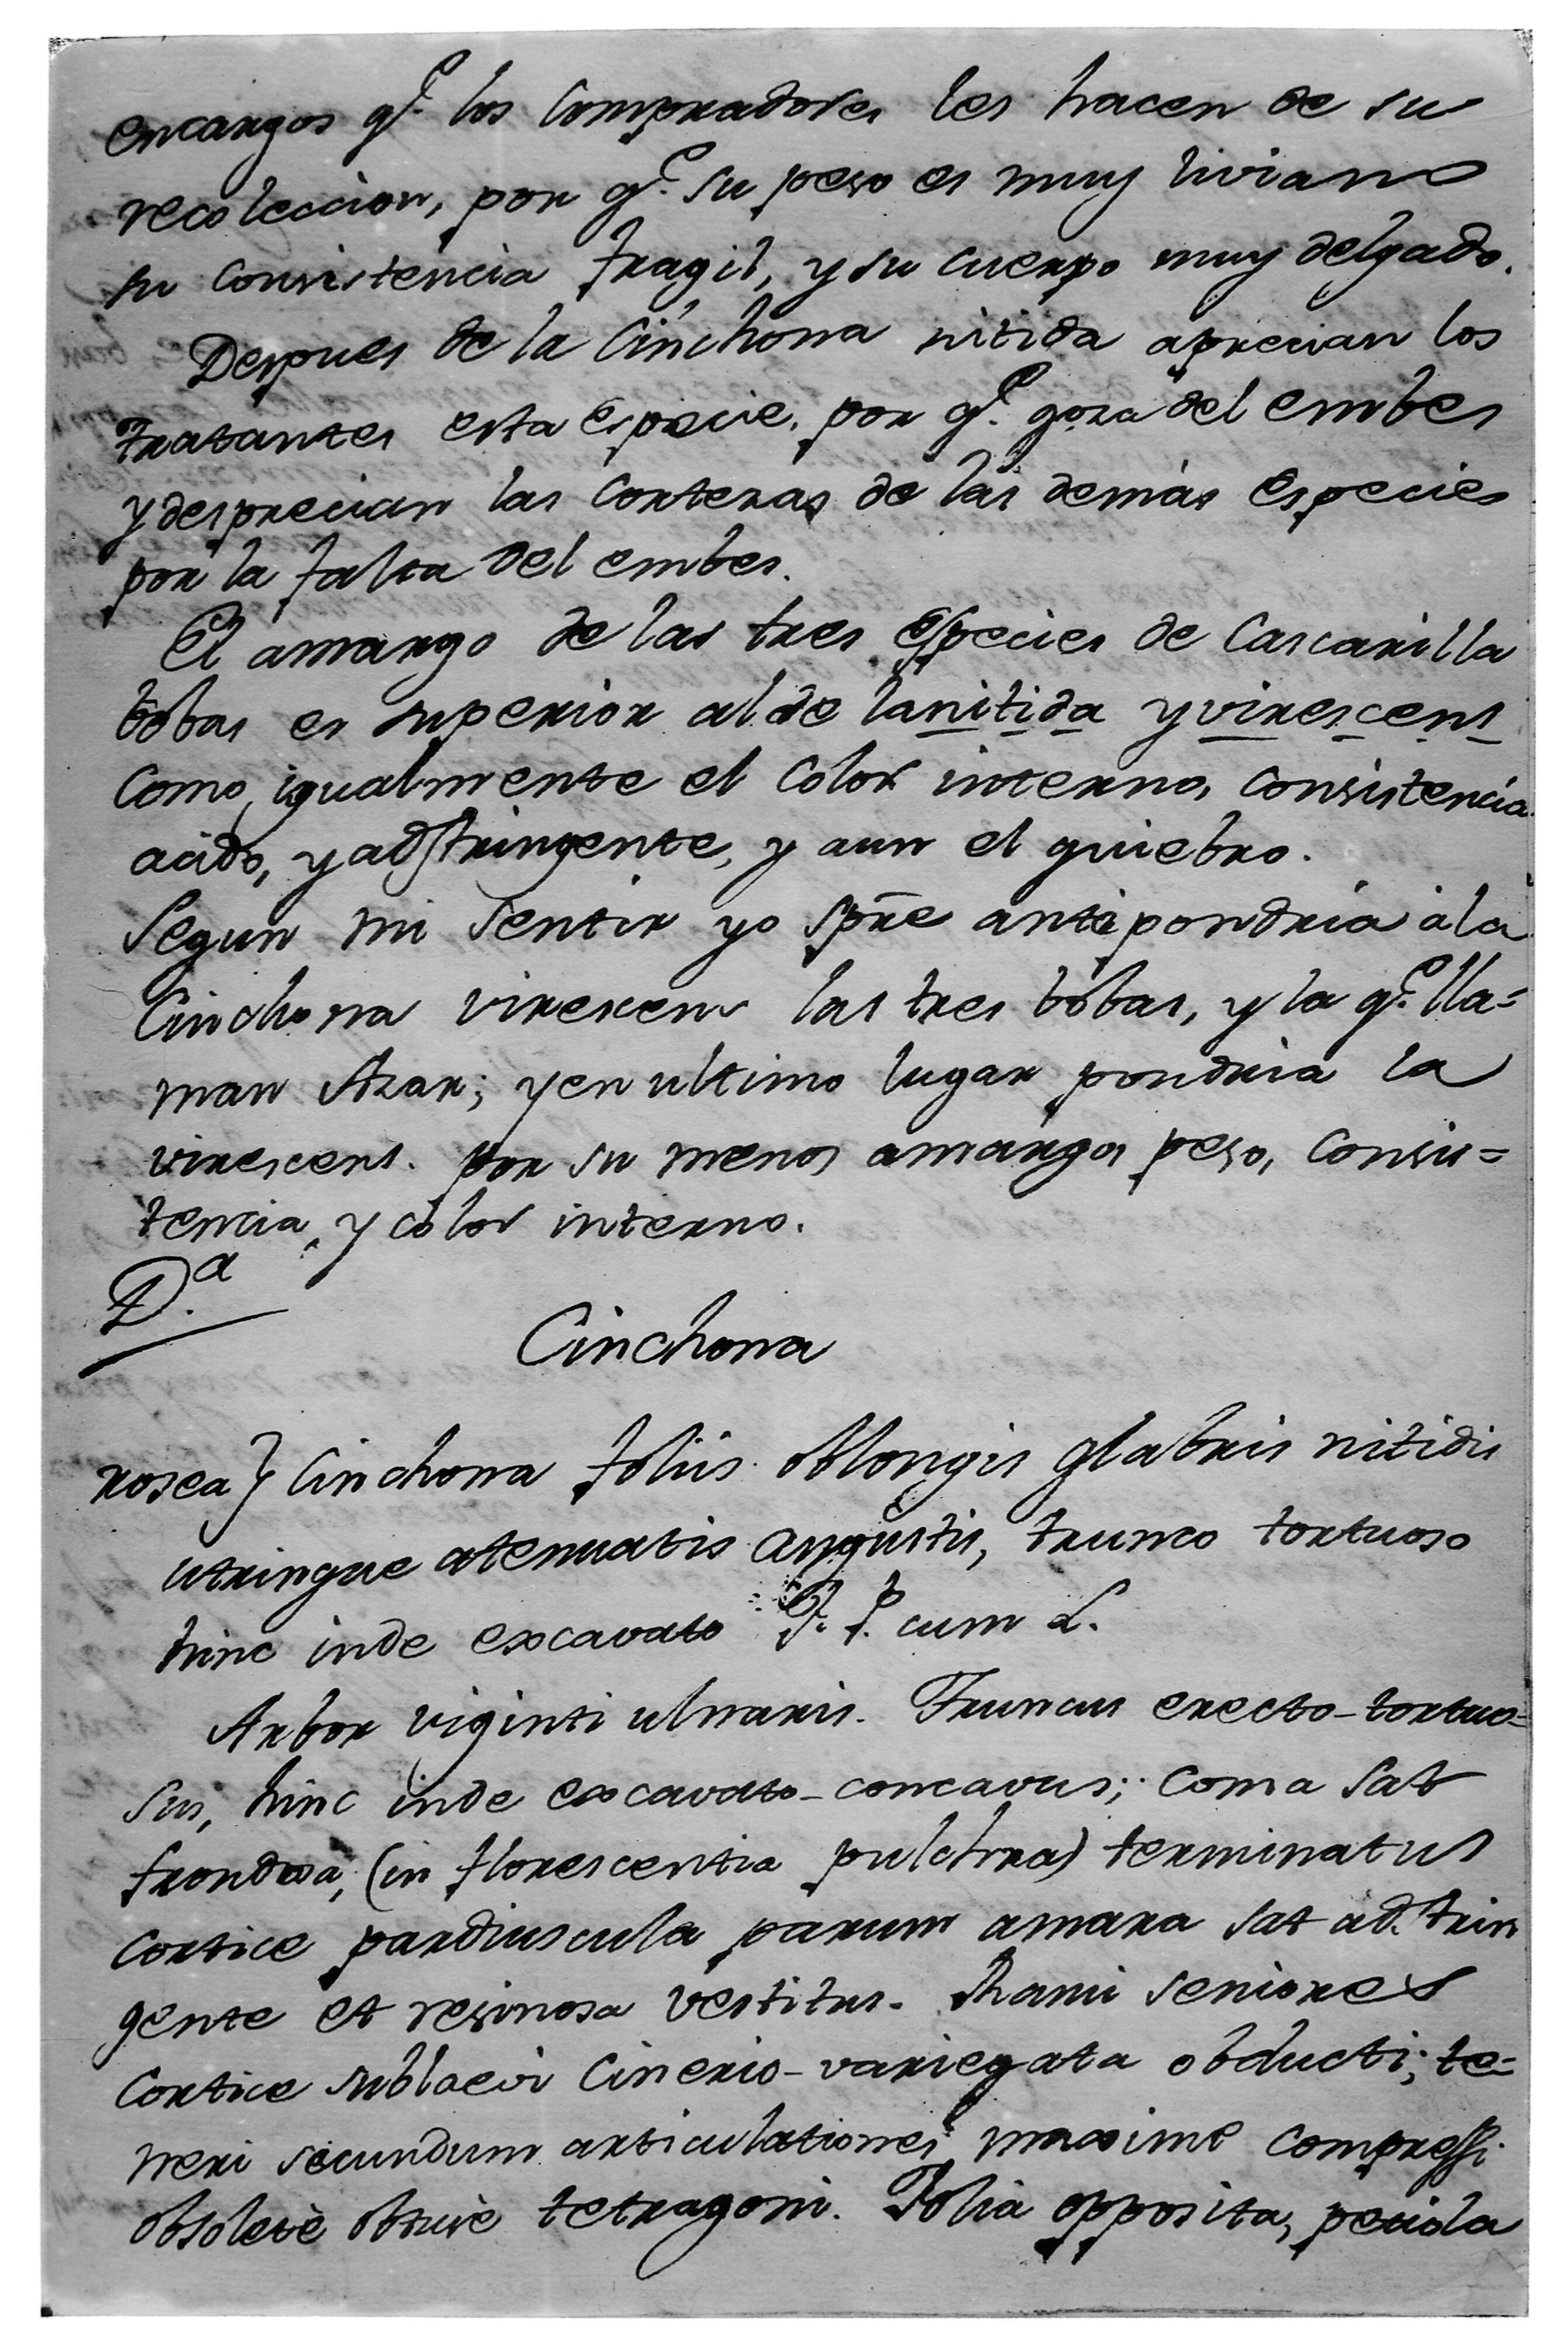 encargos q.e los Compradores les hacen de su
recoleccion, por q.e su peso es muy liviano
su consistencia fragil, y su cuerpo muy delgado.
Despues de la Cinchona nitida aprecian los
tratantes esta especie, por q.e goza del embes
y desprecian las Cortezas de las demás especies
por la falta del embes.
El amargo de las tres especies de Cascarilla
bobas es superior al de la nitida y virescens
Como igualmente el Color interno, consistencia
acido, y adstringente, y aun el quiebro.
Segun mi sentir yo spre antepondria à la
Cinchona virescens las tres bobas, y la q.e lla=
man Azar; y en ultimo lugar pondria la
virescens. por su menos amargor peso, consis=
tencia, y color interno.
D.a
Cinchona
rosea} Cinchona foliis oblongis glabris nitidis
utringue atenuatis angustis, trunco tortuoso
hinc inde excavato F. P. cum L.
Arbor viginti ulnaris. Truncus erecto-tortuo=
sus, hinc inde excavato-concavus; Coma sat
frondosa, (in florescentia pulchra) terminatus
Cortice pardiuscula parum amara sat adstrin
gente et resinosa vestitus. Rami seniores
Cortice sublaevi Cinerio-variegata obducti; te=
neri secundum articulationes maxime compressi
obsoletè obtusè tetragoni. Folia opposita, peciola